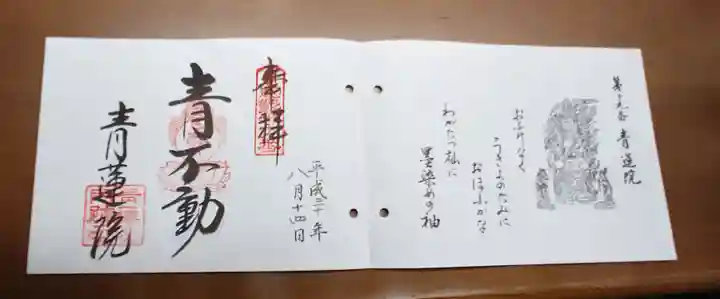 第十九番 青蓮院
おほけなく
うき世のたみに
おほふかな
わがたつ杣に
墨染めの袖
奉拝
平成三十年
八月十四日
青不動
青蓮院